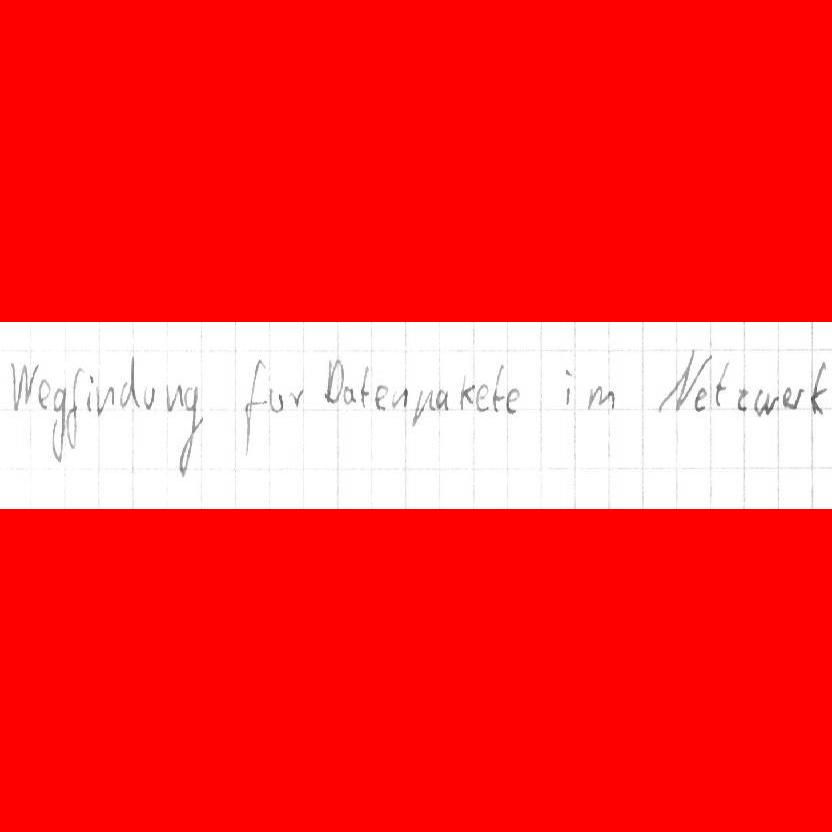 Wegfindung fur Datenpakete im Netzwerk